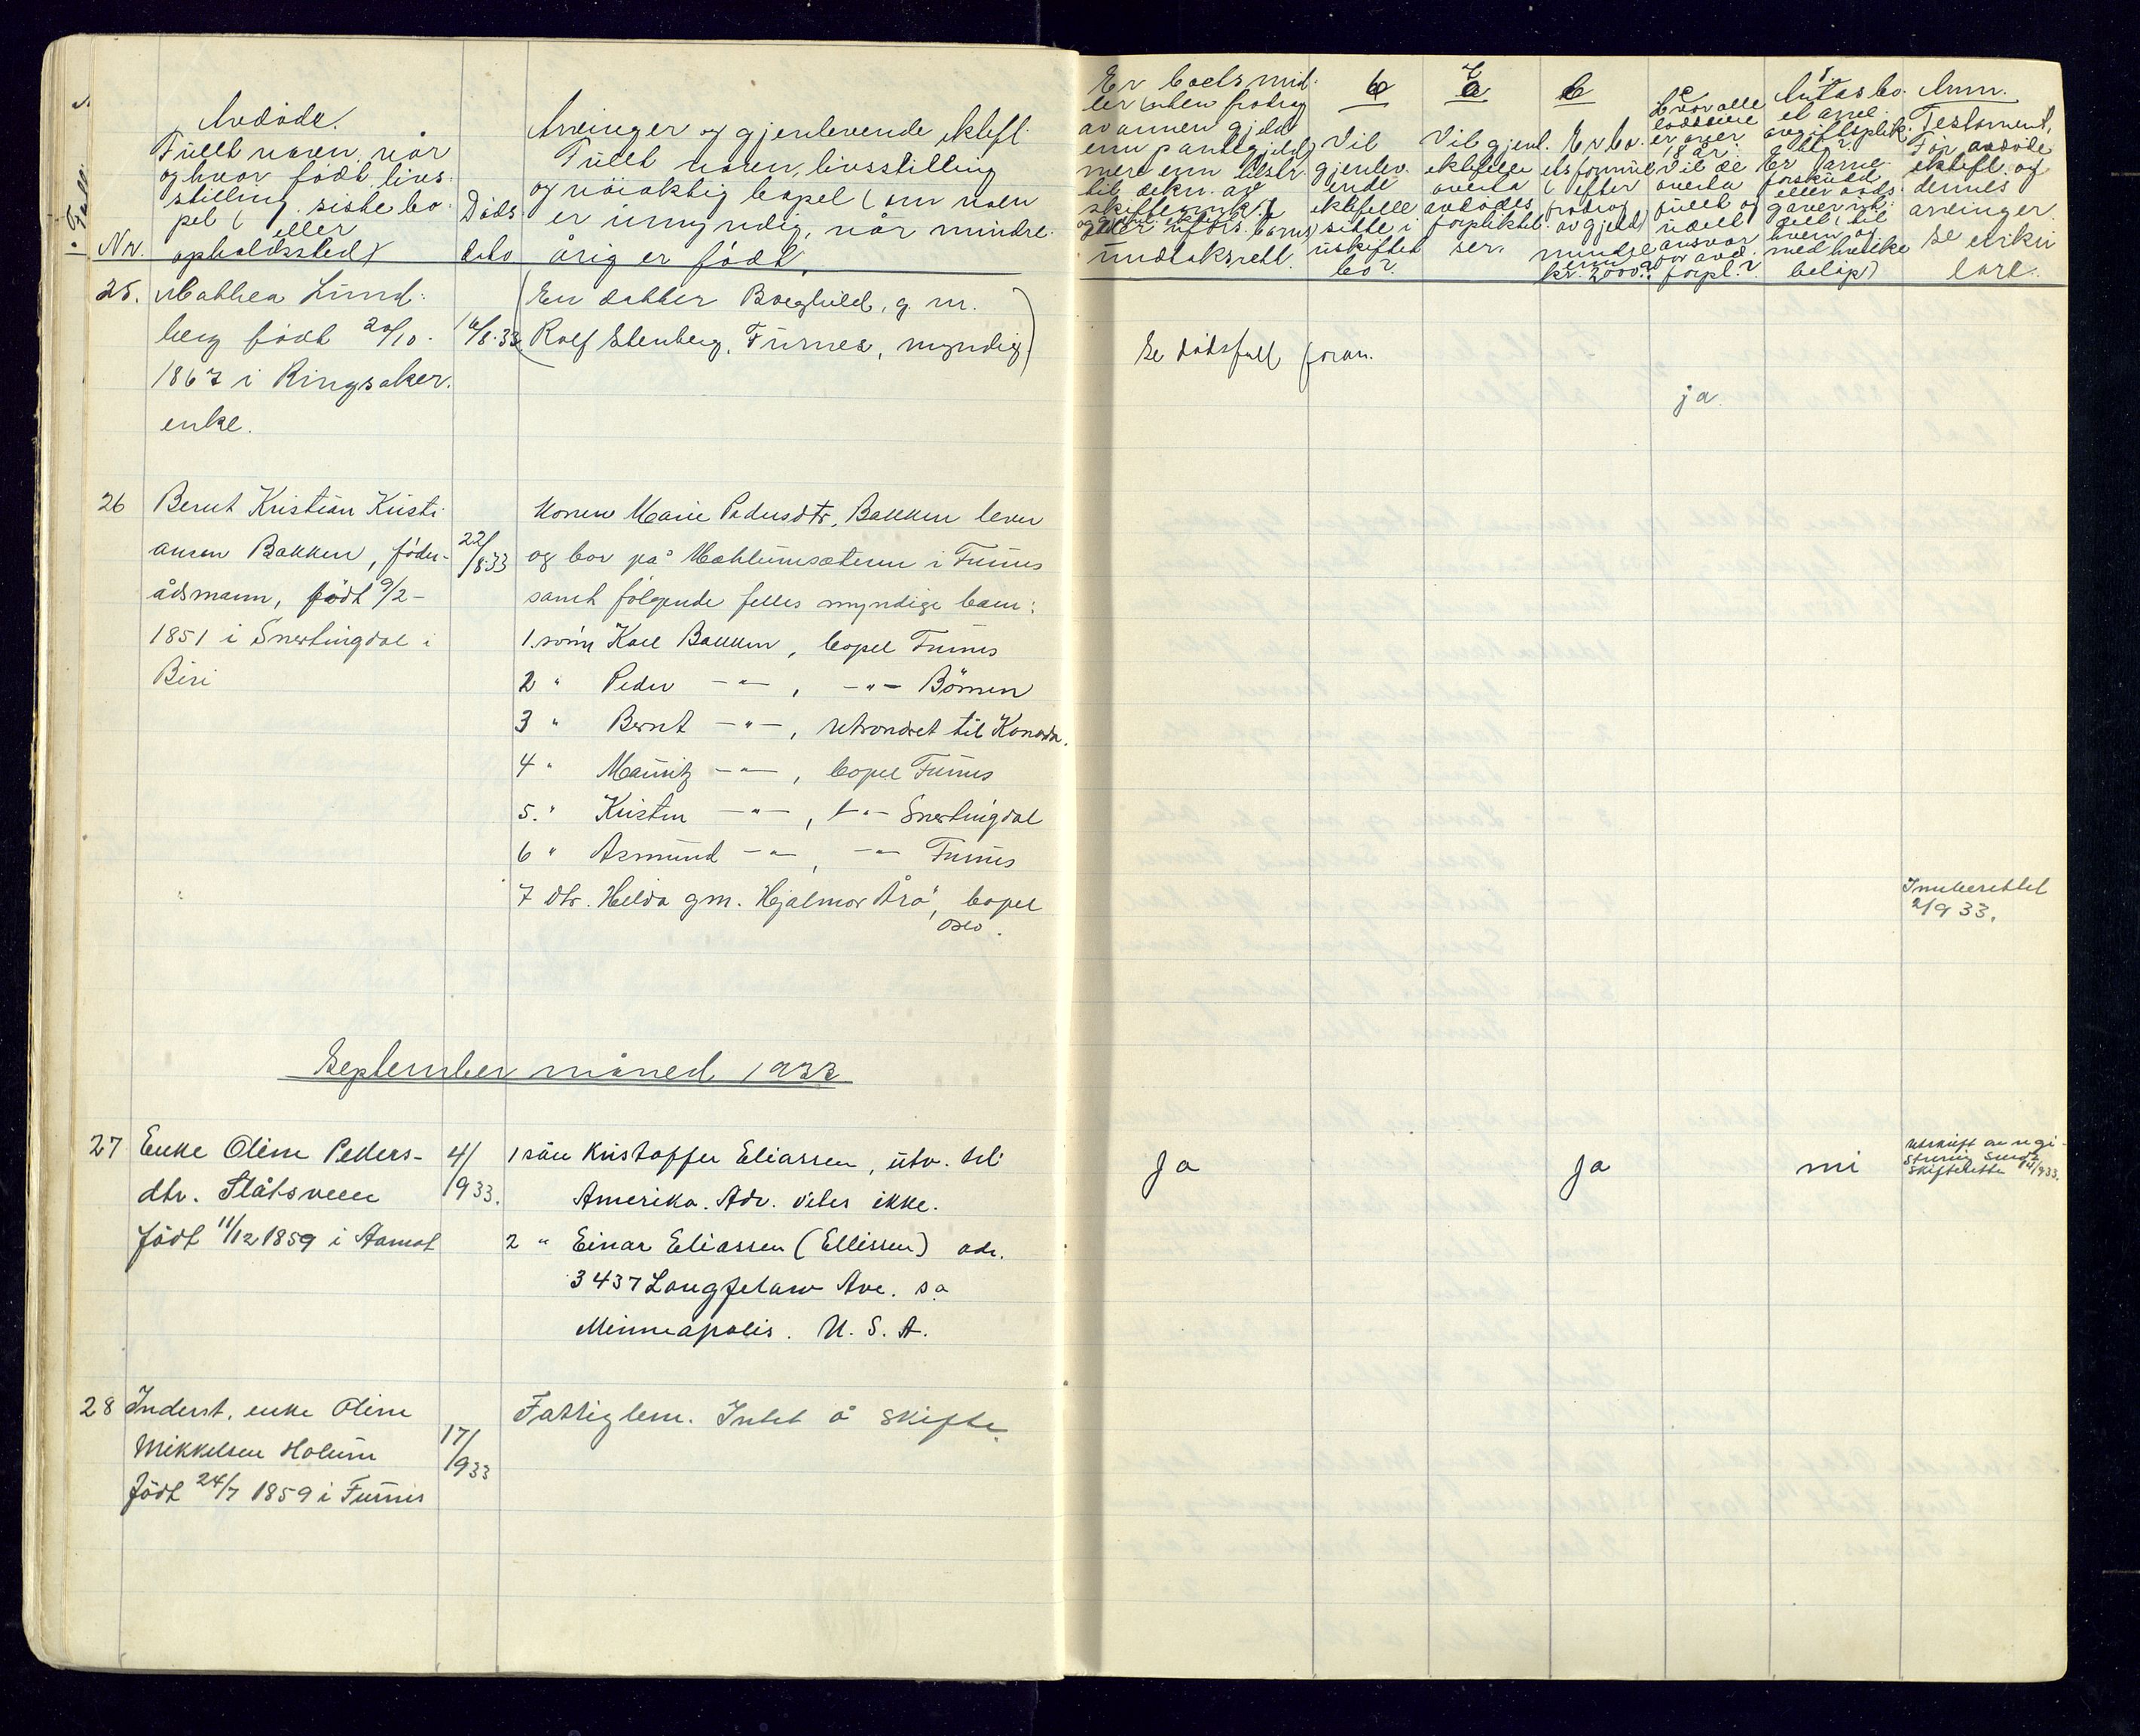 Avdøde.
Fullt navn, når
og hvor født, livs-
stilling, siste bo-
pel (eller
opholdssted)
Nr.
Døds
dato
Arvinger og gjenlevende ektef.
Fullt navn, livsstilling
og nöiaktig bopel (om noen
er umyndig, når mindre-
årig er født.
Er boets mid-
ler uten fradrag
av annen gjeld
enn pantegjeld
mere enn tilstr.
til dekn. av
undtaksrett.
Vil
gjenlev-
ende
ektefelle
sitte i
uskiftet
bo?
Vil gjenl.
ektefelle
overta
avdødes
forpliktel-
ser.
Er bo-
ets formue
(efter
fradrag
av gjeld)
mindre
enn
kr. 2000?
Hvor alle
loddeiere
er over
18 år.
Vil de
overta
fullt og
udelt
ansvar
for avd.
forpl.?
Antas bo-
et arve-
avgiftsplik-
tig?
Er arve-
forskudd
eller gaver
hvem og
med hvilke
beløp)
Anm.
Testament,
For avdøde
ektef. og
dennes
arvinger
25. Mathea Lund-
berg født 20/10-
1867 i Ringsaker.
enke.
16/8.33
(En datter Borghild, g. m.
Rolf Stenberg, Furnes, myndig)
Se dødsfall foran.
ja.
26 Bernt Kristian Kristi-
ansen Bakken, föder-
ådsmann, født 9/2-
1851 i Snertingdal i
Biri
22/8.33
Konen Marie Pedersdtr. Bakken lever
og bor på Mahlumsæteren i Furnes
samt følgende felles myndige barn:
1. sønn Karl Bakken, bopel Furnes
2 " Peder -"-, -"- Bömen
3 " Bernt -"-, utvandret til Kanada.
4 " Mauritz -"-, bopel Furnes
5. " Kristen -"-, -"- Snertingdal
6 " Asmund -"-, -"- Furnes
7 dtr. Helda gm. Hjalmar Årö, bopel
Oslo.
Innberettet
2/9 33.
September måned 1933
27 Enke Oline Peders-
dtr. Slåtsveen
født 11/12 1859 i Aamot
4/9 33.
1 sön Kristoffer Eliassen, utv. til
Amerika. Adr. vites ikke.
2 " Einar Eliassen (Ellissen) adr.
3437 Longfelaw Ave. so
Minneapolis. U. S. A.
ja
ja
nei
Utskrift av regi-
strering sendt
skifteretten
28 Inderst. enke Oline
Mikkelsen Holum
født 24/7 1859 i Furnes
17/9 33
Fattiglem. Intet å skifte.